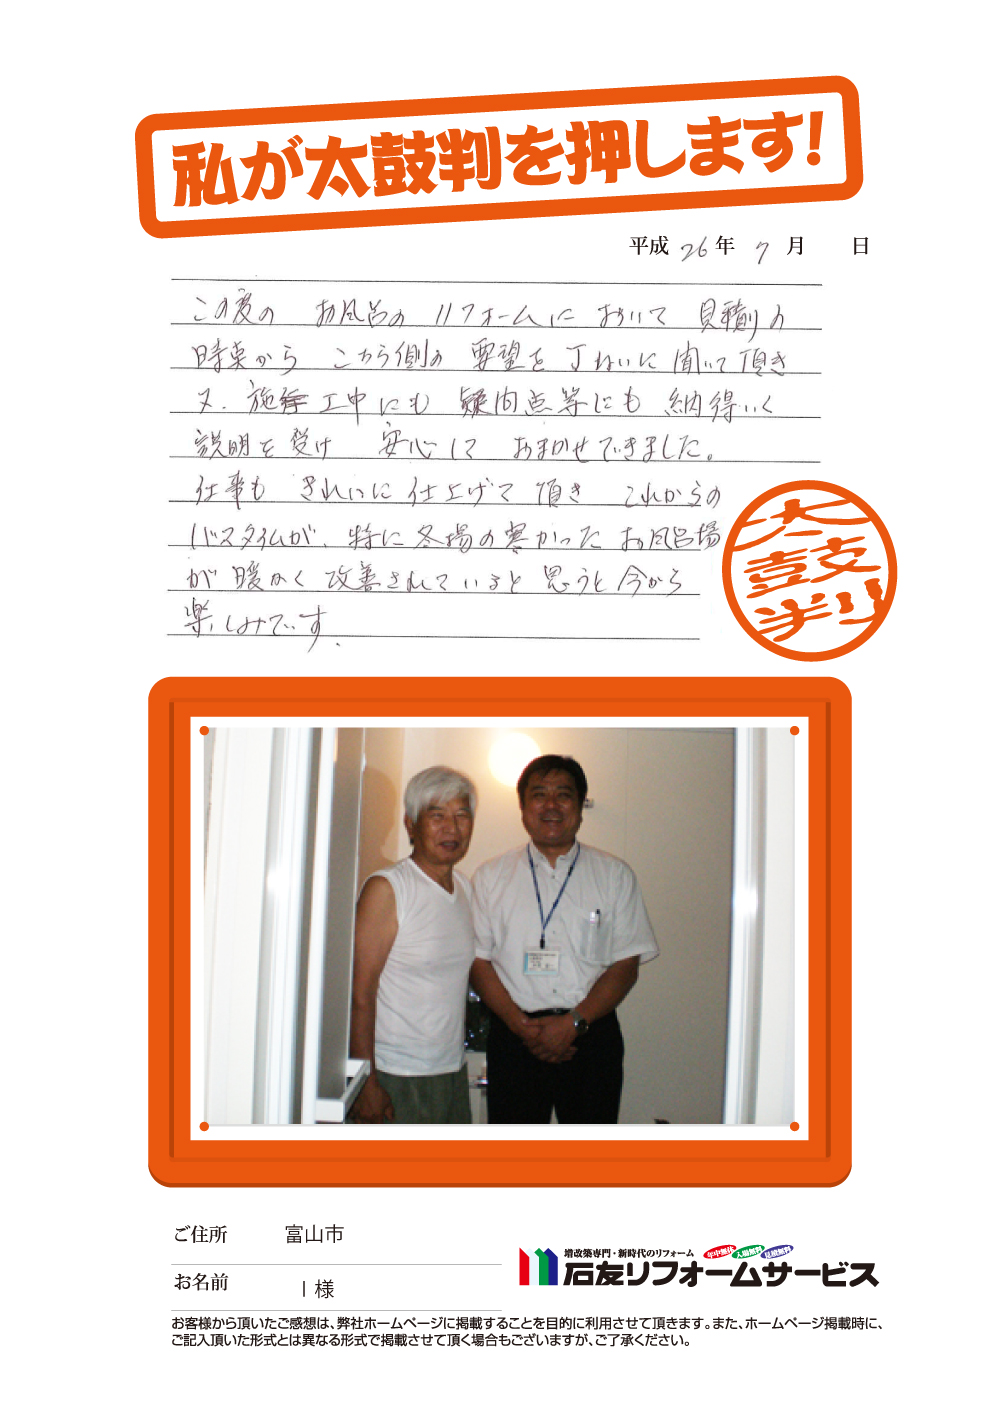 私が太鼓判を押します!
平成 26 年 7 月 日
この度の お風呂の リフォームに おいて 見積りの
時点から こちら側の 要望を 丁ねいに 聞いて頂き
又、施工中にも 疑問点等にも 納得いく
説明を受け 安心して おまかせできました。
仕事も きれいに 仕上げて 頂き これからの
バスタイムが、特に冬場の寒かったお風呂場
が 暖かく 改善されていると 思うと今から
楽しみです.
太鼓判
ご住所 富山市
お名前 I 様
増改築専門・新時代のリフォーム 年中無休 入場無料 見積無料
石友リフォームサービス
お客様から頂いたご感想は、弊社ホームページに掲載することを目的に利用させて頂きます。また、ホームページ掲載時に、
ご記入頂いた形式とは異なる形式で掲載させて頂く場合もございますが、ご了承ください。